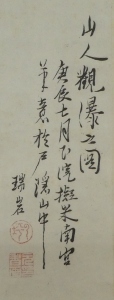 山人觀瀑之圖
庚辰七月下浣擬米南宮
筆意於戸隠山中
瑞岩